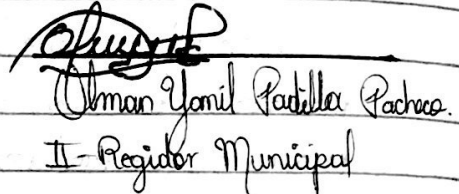 Olman Yamil Padilla Pacheco.
II - Regidor Municipal